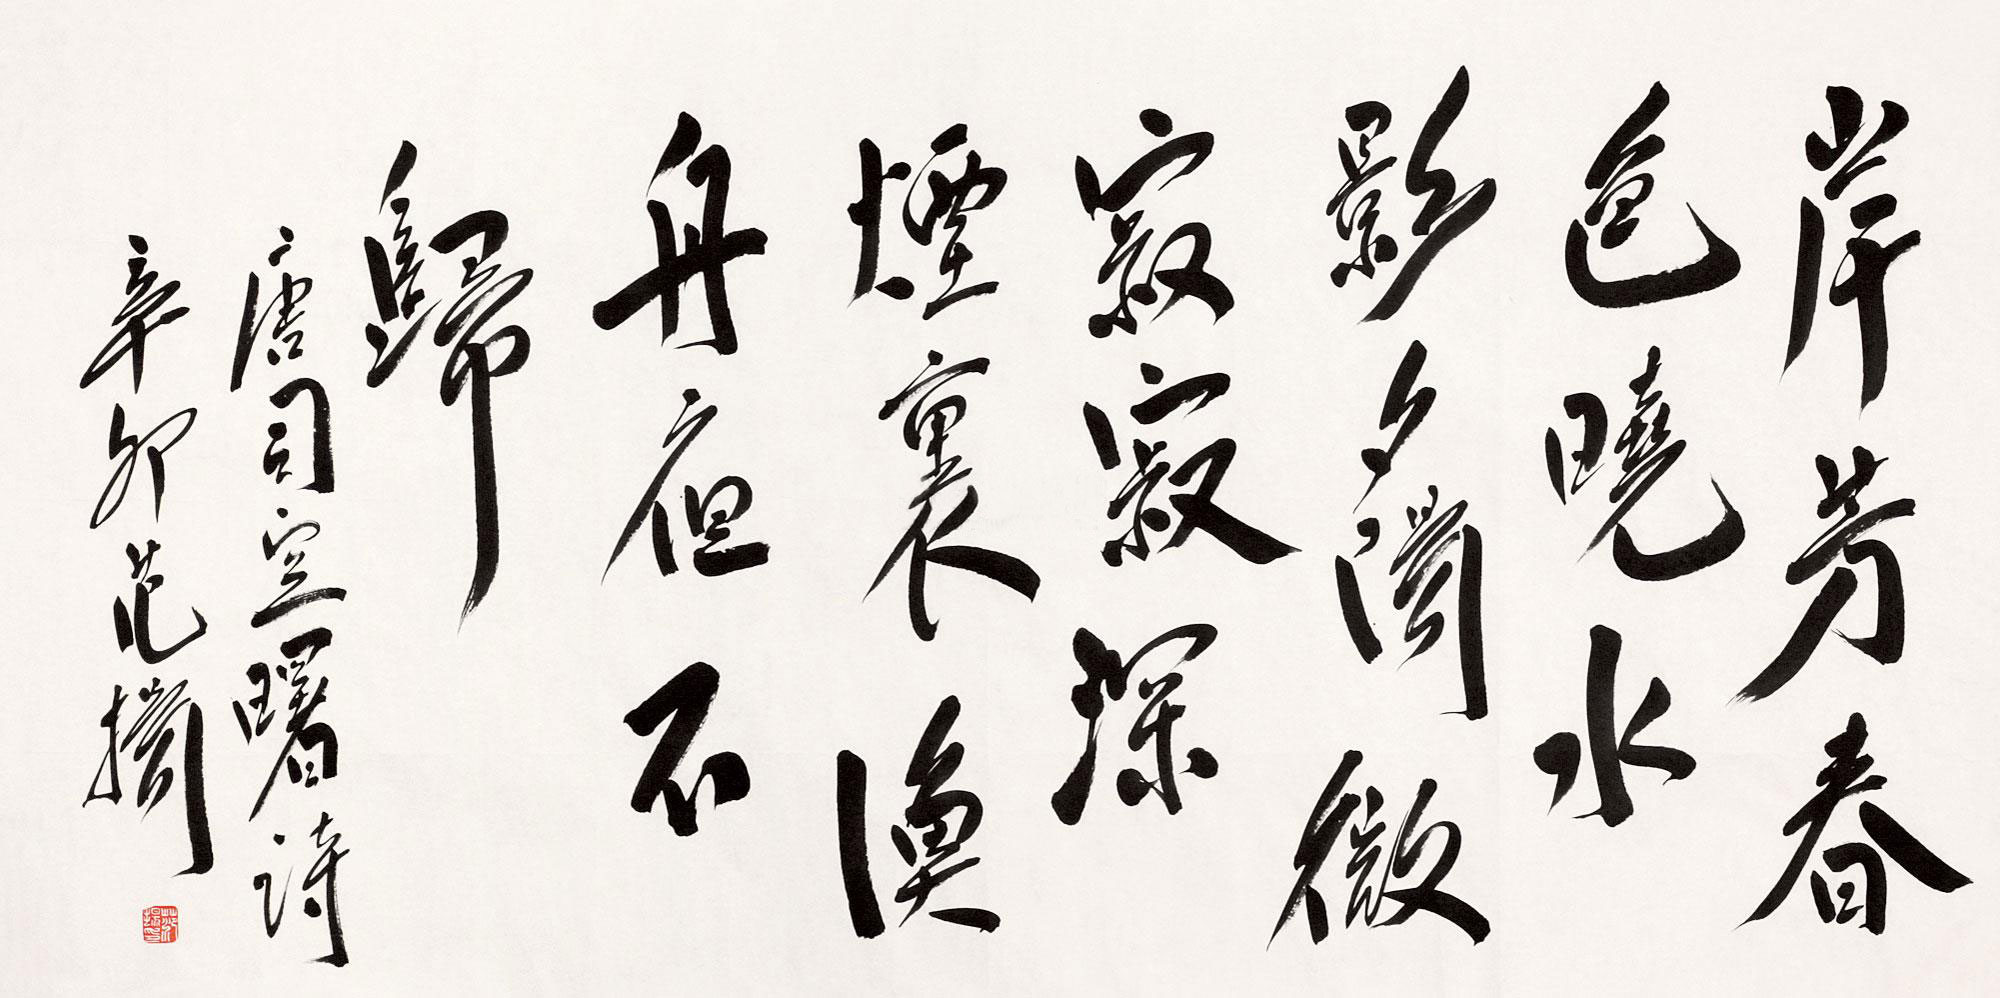 岸芳春
色曉水
影夕陽微
寂寂深
煙裏漁
舟夜不
歸
唐司空曙詩
辛卯范揚